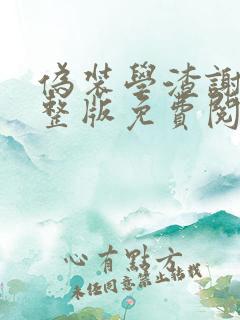 偽裝學渣謝
整版免費閱
心有點方
未經同意禁止轉載